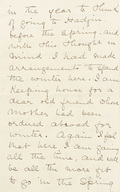 in the year to think
of going to Hadzor
before the Spring, and
with this thought in
mind I had made
arrangements to spend
the winter here. I am
Keeping house for a
dear old friend whose
mother had been
ordered abroad for
winter. Again I feel
that here I am gaining
all the time, and will
be all the more fit
to go in the Spring